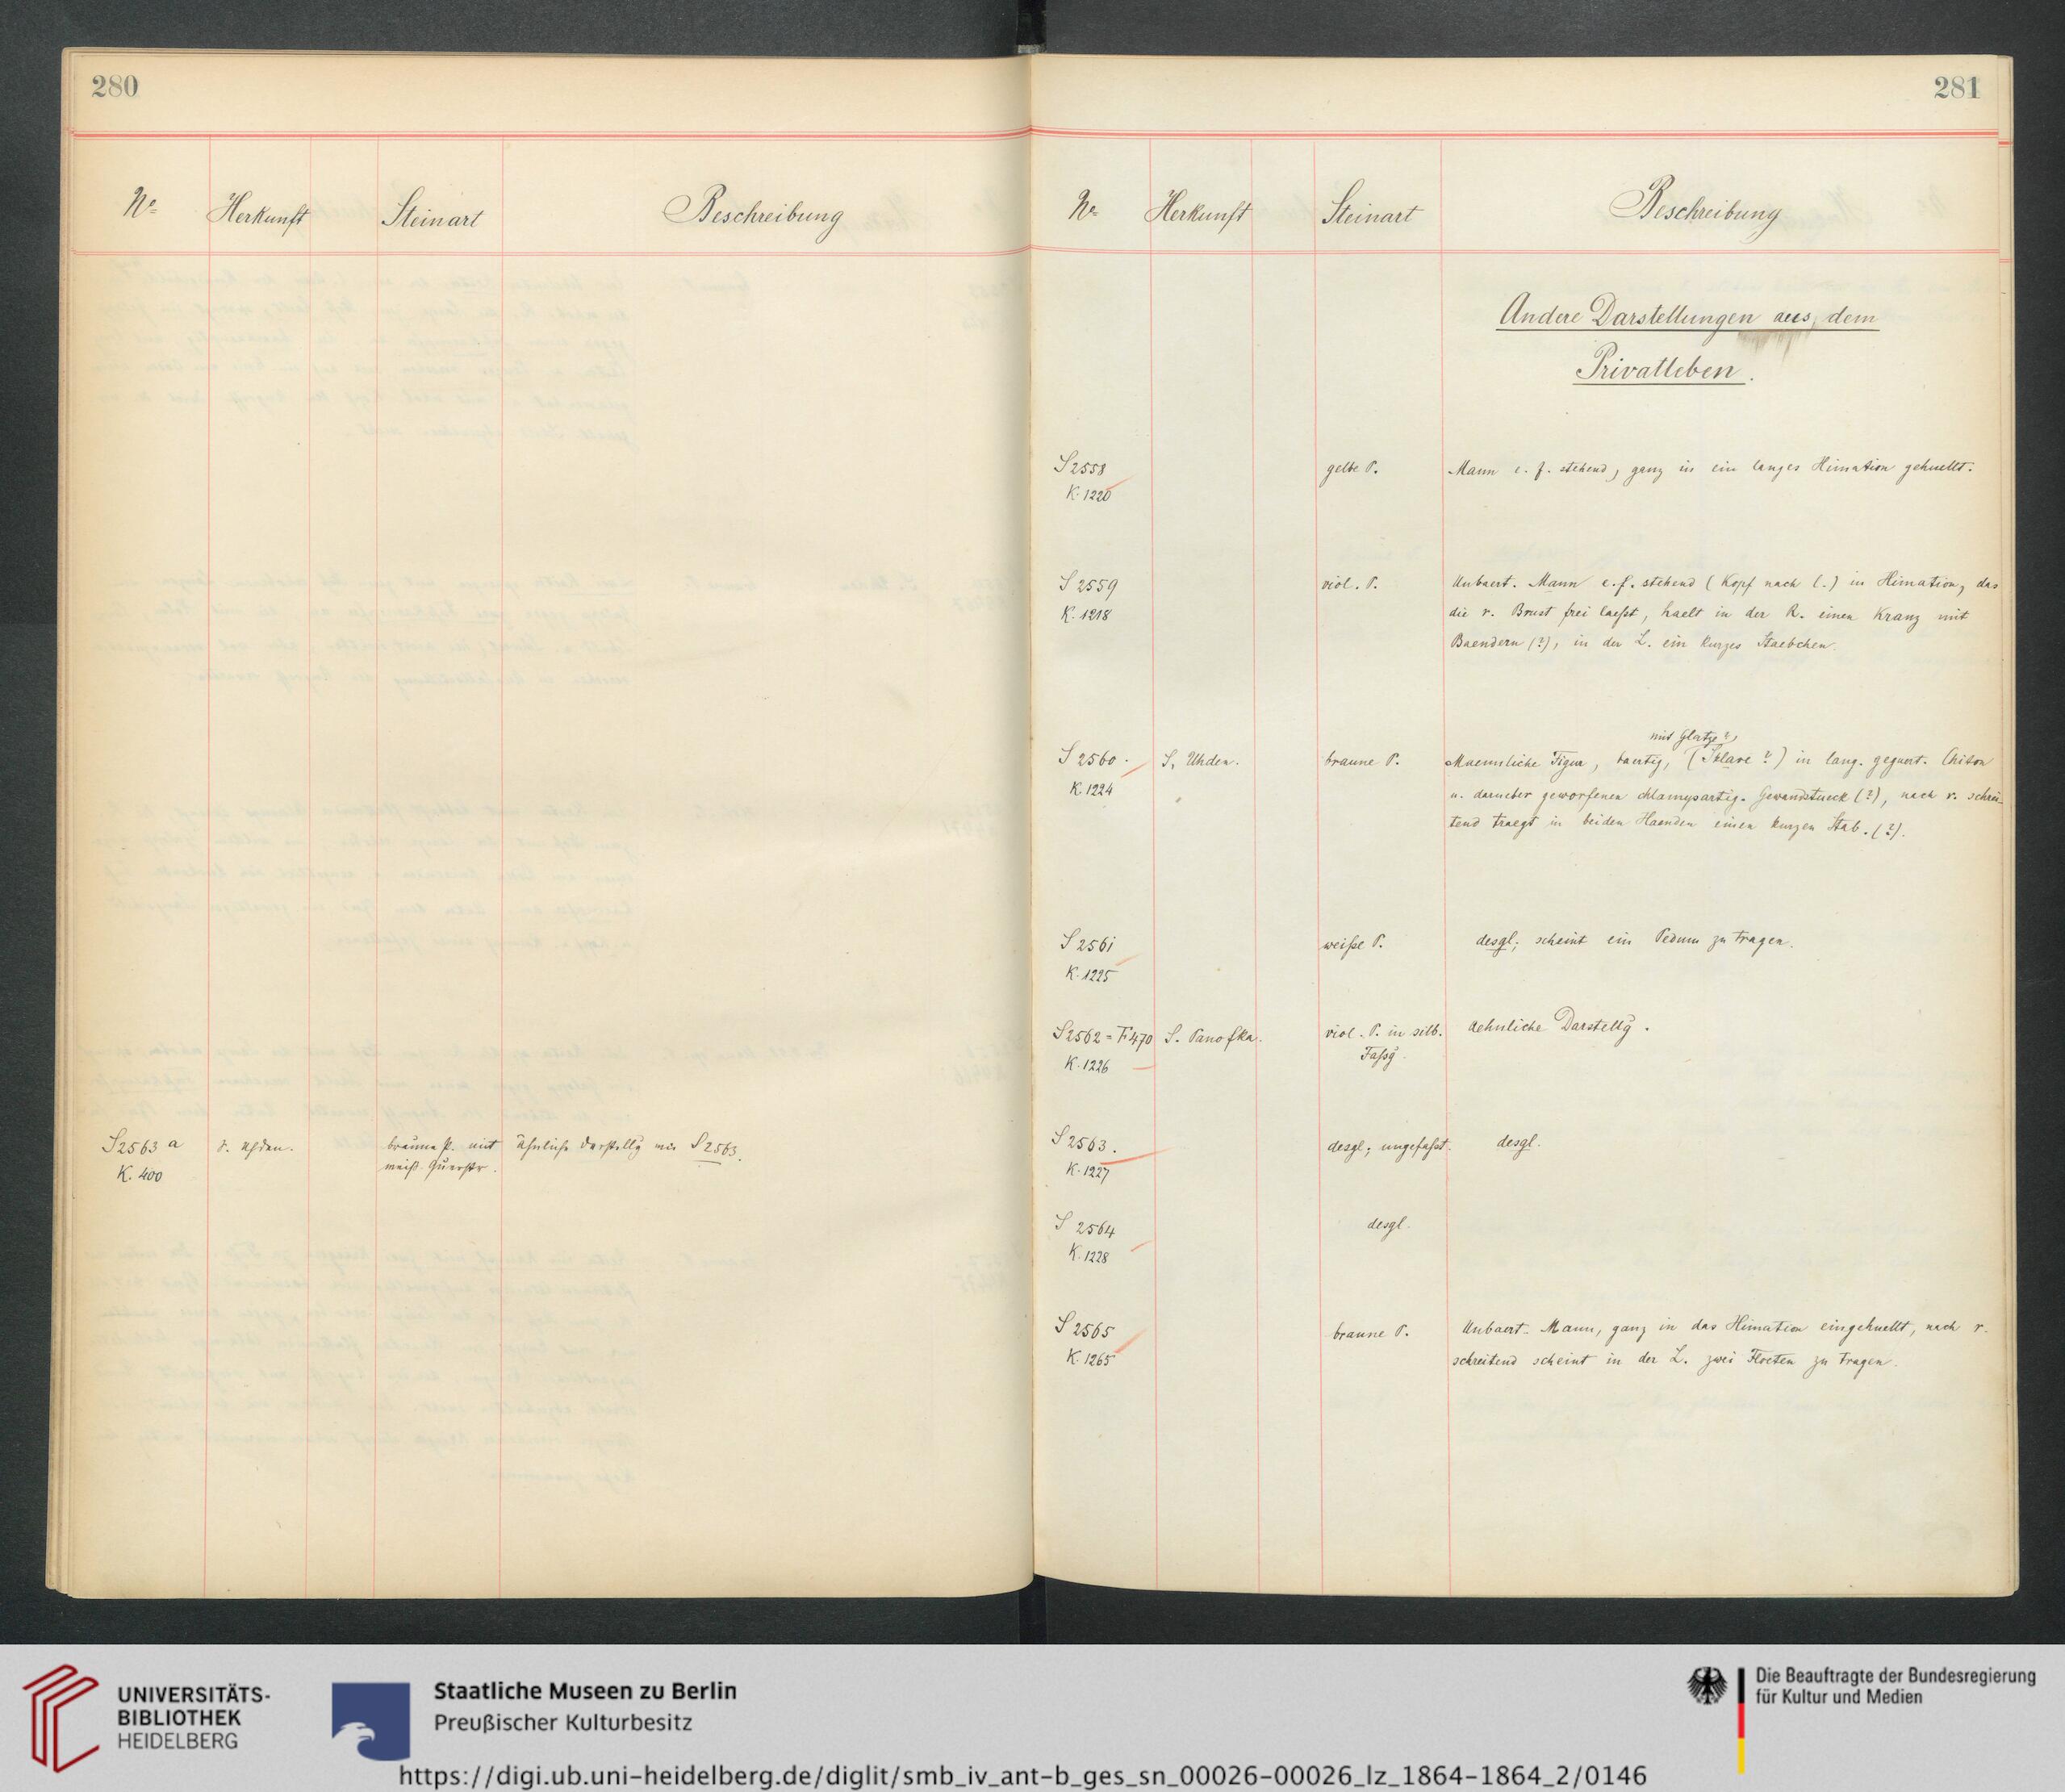 280
Nº Herkunft Steinart Beschreibung
S 2563 a S. Uhden. braune P. mit ähnliche Darstellg wie S 2563.
K. 400 weiß. Querstr.
281
Nº Herkunft Steinart Beschreibung
Andere Darstellungen aus dem
Privatleben.
S 2558 gelbe P. Mann e. f. stehend, ganz in ein langes Himation gehuellt.
K. 1220
S 2559 viol. P. Unbaert. Mann e. f. stehend (Kopf nach l.) in Himation, das
K. 1218 die r. Brust frei laeßt, haelt in der R. einen Kranz mit
Baendern (?), in der L. ein kurzes Staebchen.
mit Glatze?,
S 2560. S. Uhden. braune P. Maennliche Figur, baertig, (Sklave?) in lang. geguert. Chiton
K. 1224 u. darueber geworfenen chlamysartig. Gewandstueck (?), nach r. schrei-
tend traegt in beiden Haenden einen kurzen Stab. (?).
S 2561 weiße P. desgl; scheint ein Pedum zu tragen.
K. 1225
S 2562 = F 470 S. Panofka. viol. P. in silb. aehnliche Darstellg.
K. 1226 Faßg.
S 2563. desgl; ungefaßt. desgl.
K. 1227
S 2564 desgl.
K. 1228
S 2565 braune P. Unbaert. Mann, ganz in das Himation eingehuellt, nach r.
K. 1265 schreitend scheint in der L. zwei Floeten zu tragen.
UNIVERSITÄTS-
BIBLIOTHEK
HEIDELBERG
Staatliche Museen zu Berlin
Preußischer Kulturbesitz
Die Beauftragte der Bundesregierung
für Kultur und Medien
https://digi.ub.uni-heidelberg.de/diglit/smb_iv_ant-b_ges_sn_00026-00026_lz_1864-1864_2/0146